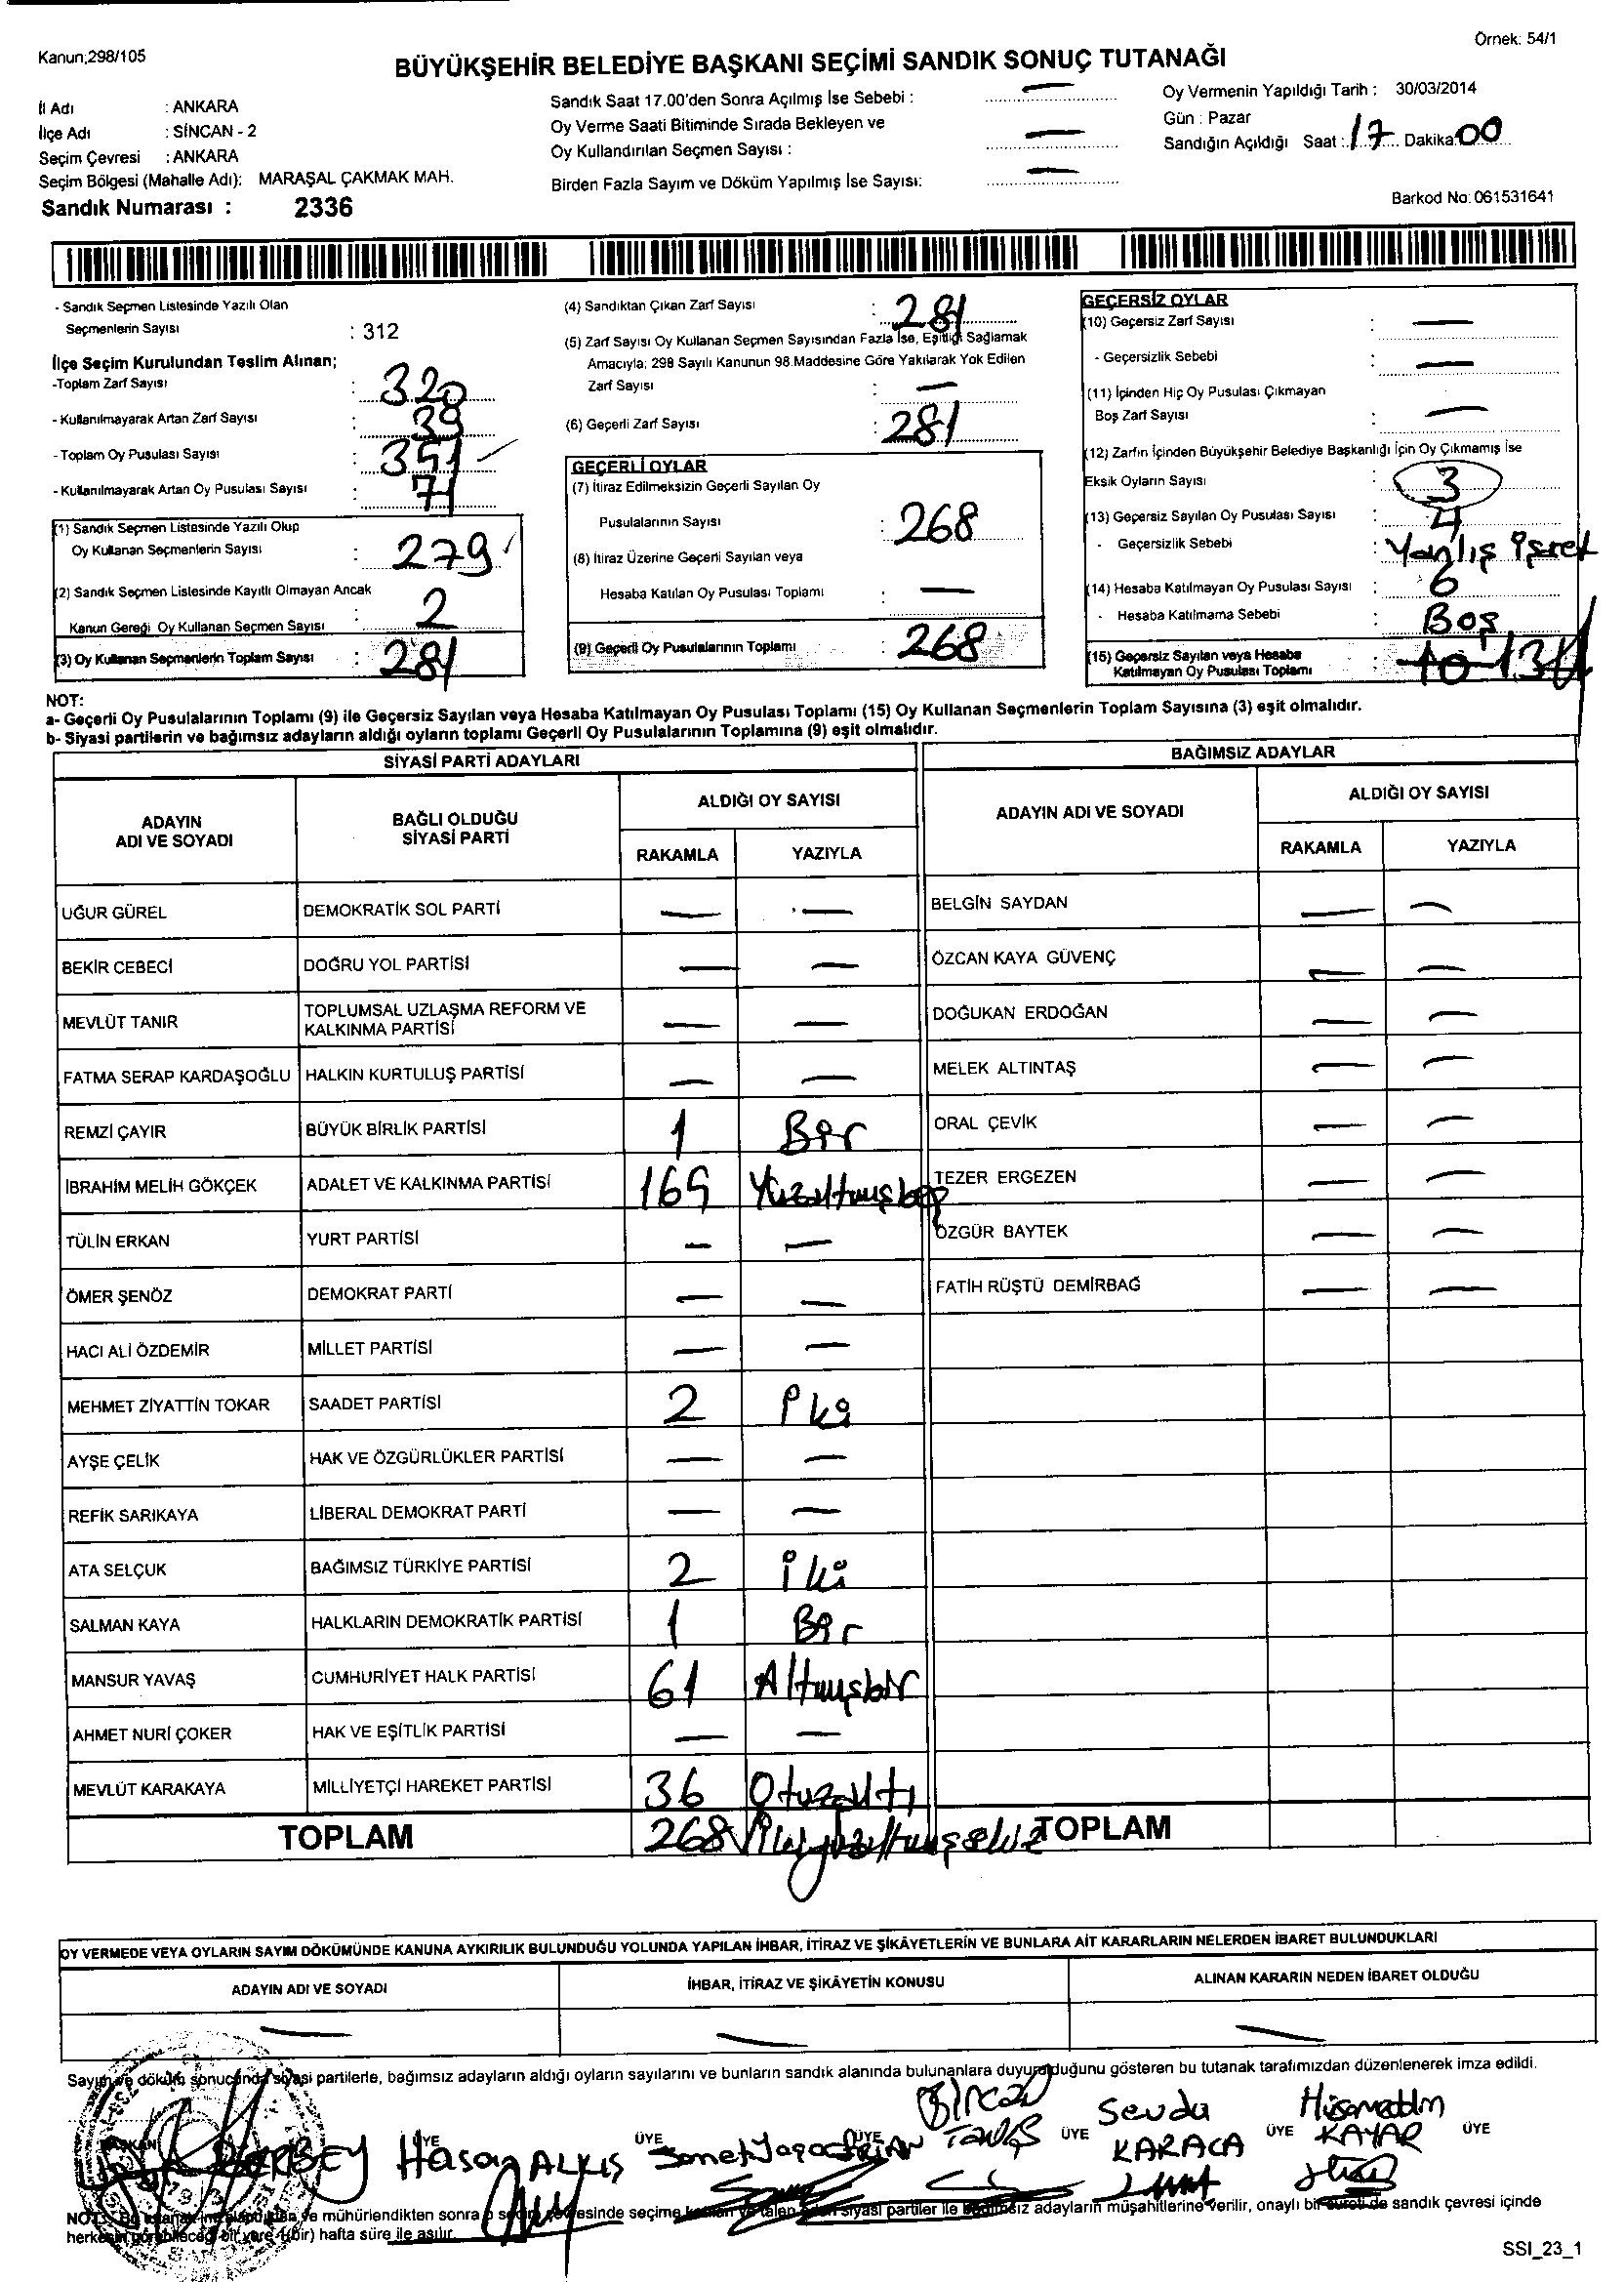 Kanun;298/105
Örnek: 54/1
BÜYÜKŞEHİR BELEDİYE BAŞKANI SEÇİMİ SANDIK SONUÇ TUTANAĞI
İl Adı : ANKARA
İlçe Adı : SİNCAN - 2
Seçim Çevresi : ANKARA
Seçim Bölgesi (Mahalle Adı): MARAŞAL ÇAKMAK MAH.
Sandık Numarası : 2336
Sandık Saat 17.00'den Sonra Açılmış İse Sebebi : —
Oy Verme Saati Bitiminde Sırada Bekleyen ve
Oy Kullandırılan Seçmen Sayısı : —
Birden Fazla Sayım ve Döküm Yapılmış İse Sayısı: —
Oy Vermenin Yapıldığı Tarih : 30/03/2014
Gün : Pazar
Sandığın Açıldığı Saat : 17 Dakika: 00
Barkod No: 061531641
- Sandık Seçmen Listesinde Yazılı Olan
Seçmenlerin Sayısı : 312
İlçe Seçim Kurulundan Teslim Alınan;
-Toplam Zarf Sayısı : 320
- Kullanılmayarak Artan Zarf Sayısı : 39
- Toplam Oy Pusulası Sayısı : 351
- Kullanılmayarak Artan Oy Pusulası Sayısı : 71
(1) Sandık Seçmen Listesinde Yazılı Olup
Oy Kullanan Seçmenlerin Sayısı : 279
(2) Sandık Seçmen Listesinde Kayıtlı Olmayan Ancak
Kanun Gereği Oy Kullanan Seçmen Sayısı : 2
(3) Oy Kullanan Seçmenlerin Toplam Sayısı : 281
(4) Sandıktan Çıkan Zarf Sayısı : 281
(5) Zarf Sayısı Oy Kullanan Seçmen Sayısından Fazla İse, Eşitliği Sağlamak
Amacıyla; 298 Sayılı Kanunun 98.Maddesine Göre Yakılarak Yok Edilen
Zarf Sayısı : —
(6) Geçerli Zarf Sayısı : 281
GEÇERLİ OYLAR
(7) İtiraz Edilmeksizin Geçerli Sayılan Oy
Pusulalarının Sayısı : 268
(8) İtiraz Üzerine Geçerli Sayılan veya
Hesaba Katılan Oy Pusulası Toplamı : —
(9) Geçerli Oy Pusulalarının Toplamı : 268
GEÇERSİZ OYLAR
(10) Geçersiz Zarf Sayısı : —
- Geçersizlik Sebebi : —
(11) İçinden Hiç Oy Pusulası Çıkmayan
Boş Zarf Sayısı : —
(12) Zarfın İçinden Büyükşehir Belediye Başkanlığı İçin Oy Çıkmamış İse
Eksik Oyların Sayısı : 3
(13) Geçersiz Sayılan Oy Pusulası Sayısı : 4
- Geçersizlik Sebebi : Yanlış işret
(14) Hesaba Katılmayan Oy Pusulası Sayısı : 6
- Hesaba Katılmama Sebebi : Boş
(15) Geçersiz Sayılan veya Hesaba
Katılmayan Oy Pusulası Toplamı : 10 13
NOT:
a- Geçerli Oy Pusulalarının Toplamı (9) ile Geçersiz Sayılan veya Hesaba Katılmayan Oy Pusulası Toplamı (15) Oy Kullanan Seçmenlerin Toplam Sayısına (3) eşit olmalıdır.
b- Siyasi partilerin ve bağımsız adayların aldığı oyların toplamı Geçerli Oy Pusulalarının Toplamına (9) eşit olmalıdır.
SİYASİ PARTİ ADAYLARI
ADAYIN ADI VE SOYADI BAĞLI OLDUĞU SİYASİ PARTİ ALDIĞI OY SAYISI
RAKAMLA YAZIYLA
UĞUR GÜREL DEMOKRATİK SOL PARTİ — —
BEKİR CEBECİ DOĞRU YOL PARTİSİ — —
MEVLÜT TANIR TOPLUMSAL UZLAŞMA REFORM VE KALKINMA PARTİSİ — —
FATMA SERAP KARDAŞOĞLU HALKIN KURTULUŞ PARTİSİ — —
REMZİ ÇAYIR BÜYÜK BİRLİK PARTİSİ 1 Bir
İBRAHİM MELİH GÖKÇEK ADALET VE KALKINMA PARTİSİ 165 Yüzaltmışbeş
TÜLİN ERKAN YURT PARTİSİ — —
ÖMER ŞENÖZ DEMOKRAT PARTİ — —
HACI ALİ ÖZDEMİR MİLLET PARTİSİ — —
MEHMET ZİYATTİN TOKAR SAADET PARTİSİ 2 İki
AYŞE ÇELİK HAK VE ÖZGÜRLÜKLER PARTİSİ — —
REFİK SARIKAYA LİBERAL DEMOKRAT PARTİ — —
ATA SELÇUK BAĞIMSIZ TÜRKİYE PARTİSİ 2 İki
SALMAN KAYA HALKLARIN DEMOKRATİK PARTİSİ 1 Bir
MANSUR YAVAŞ CUMHURİYET HALK PARTİSİ 61 Altmışbir
AHMET NURİ ÇOKER HAK VE EŞİTLİK PARTİSİ — —
MEVLÜT KARAKAYA MİLLİYETÇİ HAREKET PARTİSİ 36 Otuzaltı
TOPLAM 268 İkiyüzaltmışsekiz
BAĞIMSIZ ADAYLAR
ADAYIN ADI VE SOYADI ALDIĞI OY SAYISI
RAKAMLA YAZIYLA
BELGİN SAYDAN — —
ÖZCAN KAYA GÜVENÇ — —
DOĞUKAN ERDOĞAN — —
MELEK ALTINTAŞ — —
ORAL ÇEVİK — —
TEZER ERGEZEN — —
ÖZGÜR BAYTEK — —
FATİH RÜŞTÜ DEMİRBAĞ — —
TOPLAM
OY VERMEDE VEYA OYLARIN SAYIM DÖKÜMÜNDE KANUNA AYKIRILIK BULUNDUĞU YOLUNDA YAPILAN İHBAR, İTİRAZ VE ŞİKÂYETLERİN VE BUNLARA AİT KARARLARIN NELERDEN İBARET BULUNDUKLARI
ADAYIN ADI VE SOYADI İHBAR, İTİRAZ VE ŞİKÂYETİN KONUSU ALINAN KARARIN NEDEN İBARET OLDUĞU
— — —
Sayım ve döküm sonucunda siyasi partilerle, bağımsız adayların aldığı oyların sayılarını ve bunların sandık alanında bulunanlara duyurulduğunu gösteren bu tutanak tarafımızdan düzenlenerek imza edildi.
BAŞKAN ÜYE ÜYE ÜYE ÜYE ÜYE ÜYE
Hasan ALKIŞ
Sevda KARACA
Hüsamettin KAYAR
mühürlendikten sonra seçim çevresinde seçime katılan ve talep eden siyasi partiler ile bağımsız adayların müşahitlerine verilir, onaylı bir sureti de sandık çevresi içinde
herkesin görebileceği bir yere 1(bir) hafta süre ile asılır.
SSI_23_1